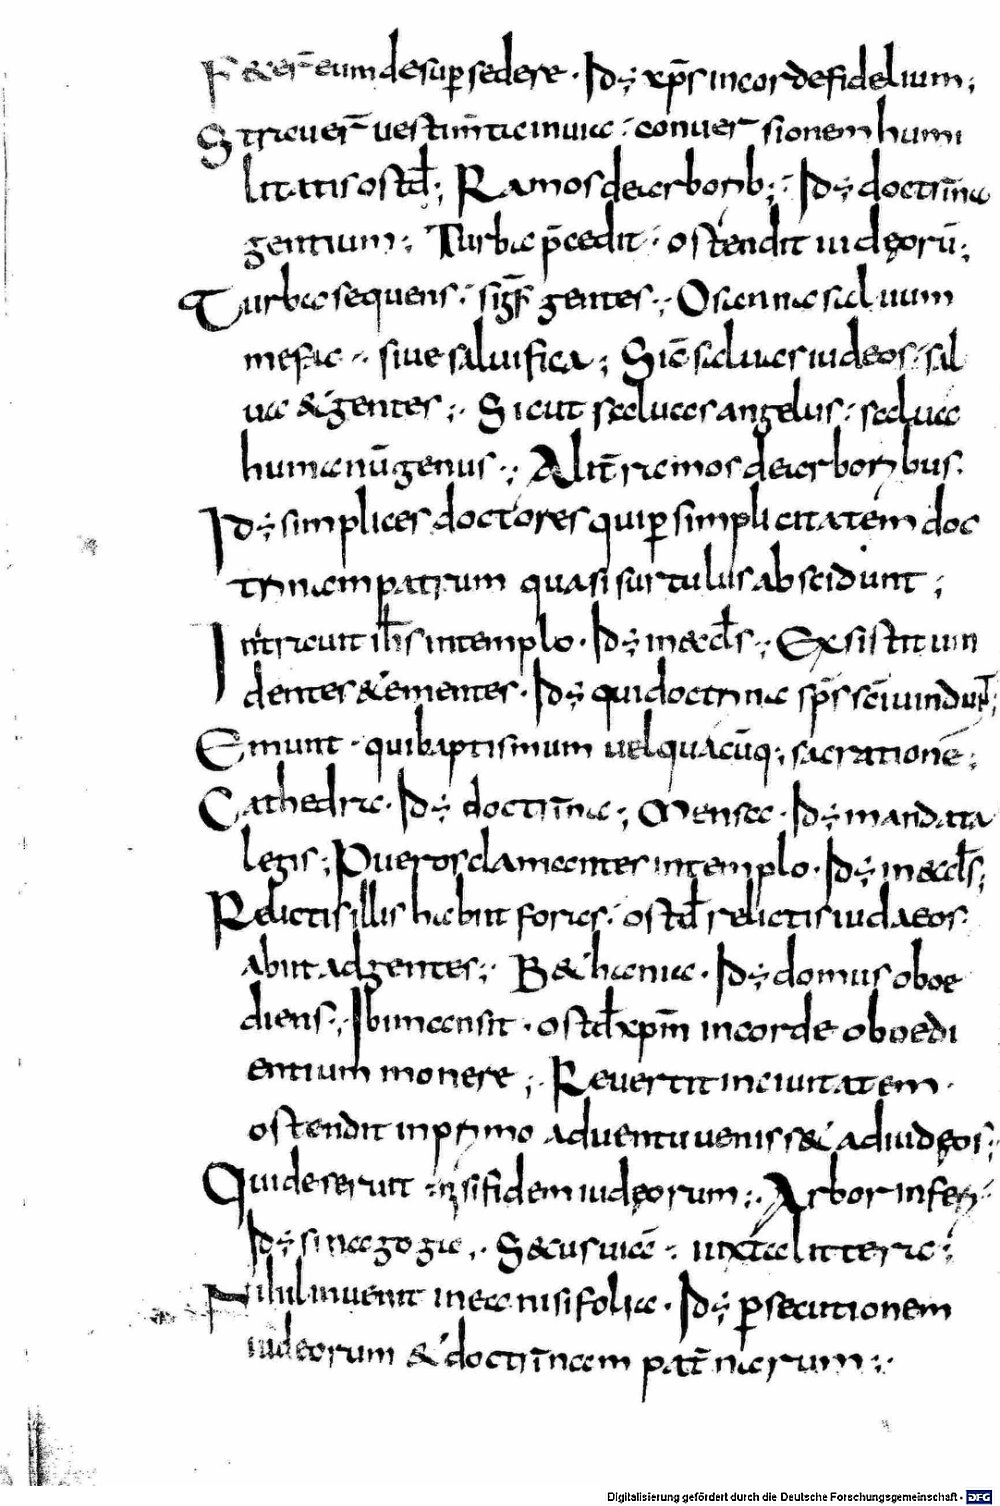 F & cer̄ eum desuꝑ sedere · Id÷ xp̄s in corde fidelium ;
Strauer̄ vestim̄ta in uia : conuersionem humi
litatis ostd̄ ; Ramos de arborib; : Id÷ doctrīna
gentium ; Turba p̄cedit · ostendit iudęorū ;
Turba sequens · sigf̄ gentes ; Osanna saluum
me fac · siue salvifica ; Sic̄ saluas iudeos · sal
ua & gentes ; Sicut saluas angelus : salua
humanū genus ; Alit̄ ramos de arboribus
Id÷ simplices doctores qui ꝑ simplicitatem doc
trinam patrum quasi surculus abscidunt ;
Intrauit ih̄s in templo · Id÷ in &ccl̄s ; Exsistit uin
dentes & ementes · Id÷ qui doctrina sp̄s sc̄i uindunt ;
Emunt · qui baptismum vel quacūq; sacrationē ;
Cathedra · Id÷ doctrīna ; Mensa · Id÷ mandata
legis ; Pueros clamantes in templo · Id÷ in &ccl̄s ;
Relictis illis habiit foras · ostd̄ relictis iudaeos
abiit ad gentes ; B&hania · Id÷ domus oboe
diens ; Ibi mansit · ostd̄ xp̄m in corde oboedi
entium monere ; Revertit in ciuitatem ·
ostendit in primo adventu veniss& ad iudęos ;
Qui deseruit fidem iudęorum ; Arbor infeṛ
Id÷ sinagoga ; Secus uia · iuxta littera ;
Nihil inuenit in ea nisi folia · Id÷ ꝑsecutionem
iudeorum & doctrīnam pat̄narum ;